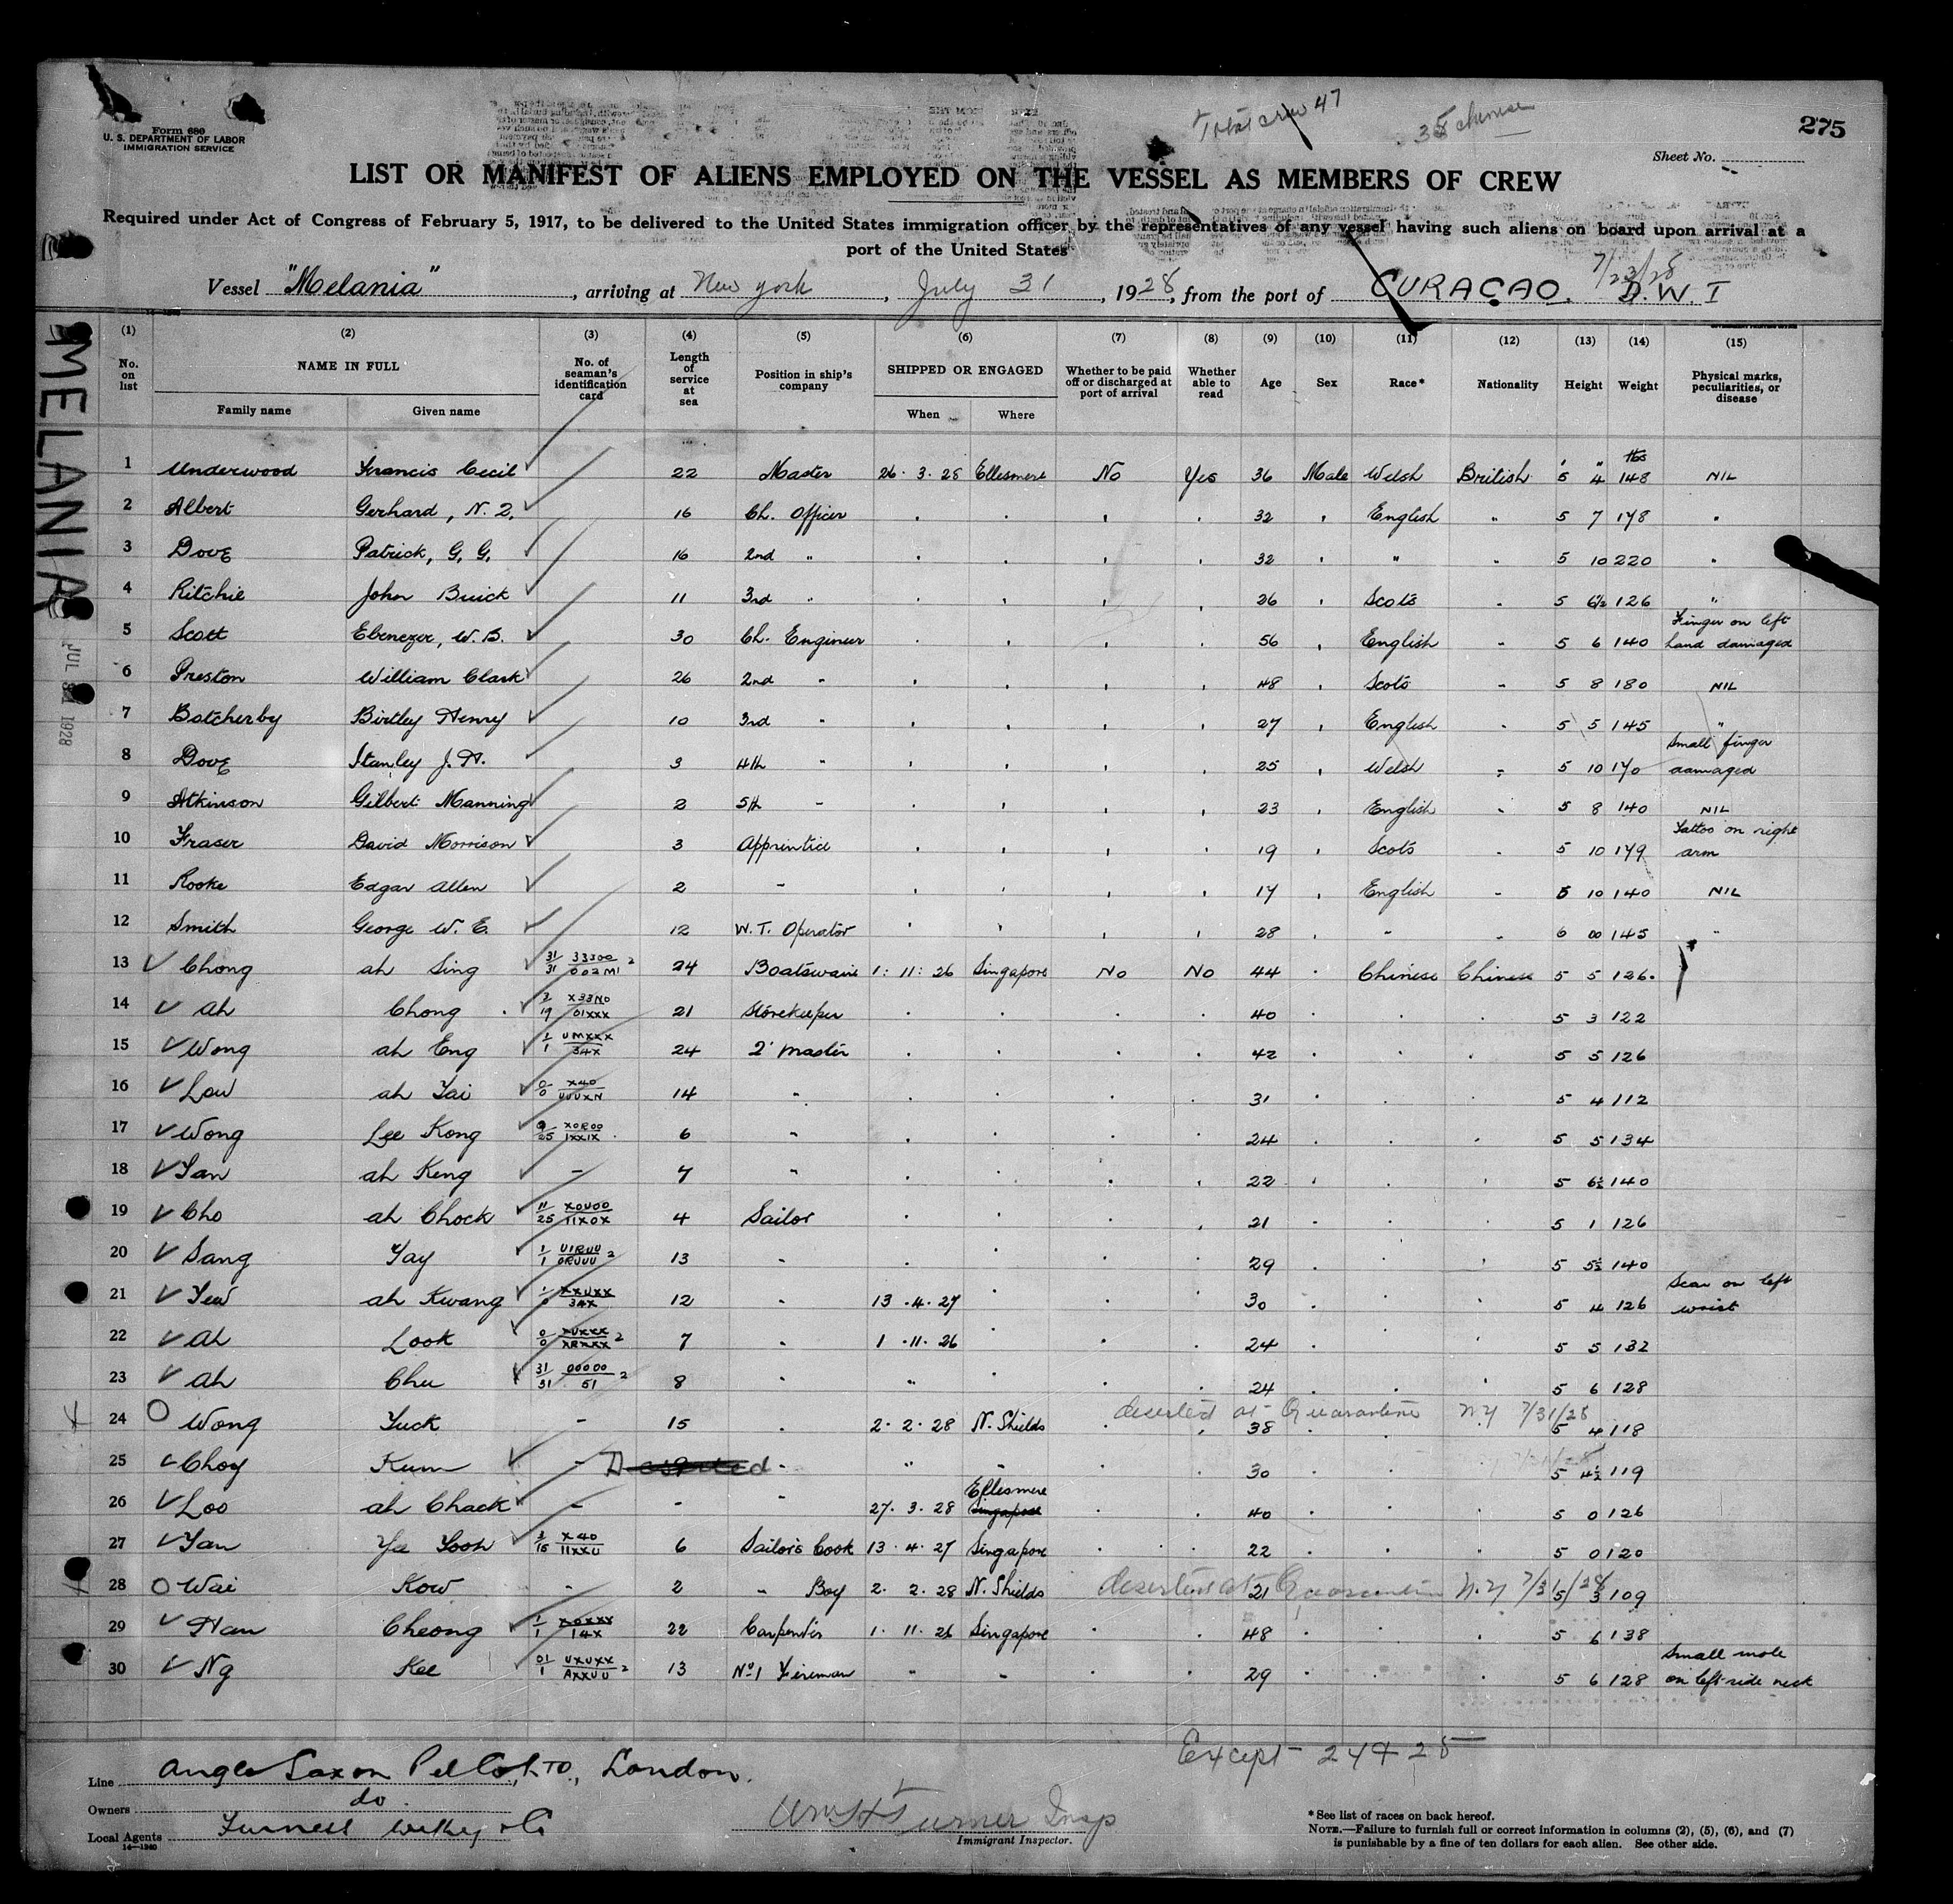 275
Total crew 47
35 chinese
Form 680
U. S. DEPARTMENT OF LABOR
IMMIGRATION SERVICE
Sheet No.
LIST OR MANIFEST OF ALIENS EMPLOYED ON THE VESSEL AS MEMBERS OF CREW
Required under Act of Congress of February 5, 1917, to be delivered to the United States immigration officer by the representatives of any vessel having such aliens on board upon arrival at a
port of the United States
7/23/28
Vessel "Melania", arriving at New York, July 31, 1928, from the port of CURAÇAO. D.W.I
MELANIA
JUL 31 1928
(1) (2) (3) (4) (5) (6) (7) (8) (9) (10) (11) (12) (13) (14) (15)
No. on list NAME IN FULL No. of seaman's identification card Length of service at sea Position in ship's company SHIPPED OR ENGAGED Whether to be paid off or discharged at port of arrival Whether able to read Age Sex Race* Nationality Height Weight Physical marks, peculiarities, or disease
Family name Given name When Where
1 Underwood Francis Cecil 22 Master 26.3.28 Ellesmere No Yes 36 Male Welsh British 5' 4" 148 lbs NIL
2 Albert Gerhard, N. Z. 16 Ch. Officer 32 English " 5 7 178 "
3 Dove Patrick, G. G. 16 2nd " 32 " " 5 10 220 "
4 Ritchie John Buick 11 3rd " 26 Scots " 5 6½ 126 "
5 Scott Ebenezer, W. B. 30 Ch. Engineer 56 English " 5 6 140 Finger on left hand damaged
6 Preston William Clark 26 2nd " 48 Scots " 5 8 180 NIL
7 Botcherby Birtley Henry 10 3rd " 27 English 5 5 145 "
8 Dove Stanley J. H. 3 4th " 25 Welsh " 5 10 170 Small finger damaged
9 Atkinson Gilbert Manning 2 5th " 23 English 5 8 140 NIL
10 Fraser David Morrison 3 Apprentice 19 Scots " 5 10 179 Tattoo on right arm
11 Rooke Edgar Allen 2 " 17 English " 5 10 140 NIL
12 Smith George W. E. 12 W.T. Operator 28 " " 6 00 145 "
13 Chong ah Sing 31/31 33300/002MI 2 24 Boatswain 1:11:26 Singapore No No 44 Chinese Chinese 5 5 126
14 ah Chong 3/19 X33NO/01XXX 21 Storekeeper 40 5 3 122
15 Wong ah Eng 1/1 UMXXX/34X 24 2' master 42 5 5 126
16 Low ah Tai 0/0 X40/UUUXN 14 " 31 5 4 112
17 Wong Lee Kong 9/25 XOROO/IXXIX 6 " 24 5 5 134
18 Tan ah Keng - 7 " 22 5 6½ 140
19 Cho ah Chock 11/25 XOUOO/11XOX 4 Sailor 21 5 1 126
20 Sang Tay 1/1 UIRUU/ORUUU 2 13 " 29 5 5½ 140
21 Yew ah Kwang 1/0 XXUXX/34X 12 " 13.4.27 30 5 4 126 Scar on left wrist
22 ah Look 0/0 XUXXX/XRXXX 2 7 " 1.11.26 24 5 5 132
23 ah Chu 31/31 00000/51 2 8 " " 24 5 6 128
24 Wong Yuck - 15 2.2.28 N. Shields 38 5 4 118
deserted at Quarantine N.Y 7/31/28
25 Choy Kum - Deserted " " 30 5 4½ 119
26 Loo ah Chack - - " 27.3.28 Ellesmere Singapore 40 5 0 126
27 Yan Ya Yook 3/15 X40/11XXU 6 Sailor's Cook 13.4.27 Singapore 22 5 0 120
28 Wai Kow - 2 " Boy 2.2.28 N. Shields 21 5 3 109
deserted at Quarantine N.Y 7/31/28
29 Han Cheong 1/1 XOXXX/14X 22 Carpenter 1.11.26 Singapore 48 5 6 138
30 Ng Kee 01/1 UXUXX/AXXUU 2 13 No 1 Fireman " " 29 5 6 128 Small mole on left side neck
Except 24 + 28
Line Anglo Saxon Pet Co, LTD., London.
Owners do.
Local Agents Furness Withy & Co
14—1240
Wm H Turner Insp
Immigrant Inspector.
*See list of races on back hereof.
NOTE.—Failure to furnish full or correct information in columns (2), (5), (6), and (7)
is punishable by a fine of ten dollars for each alien. See other side.